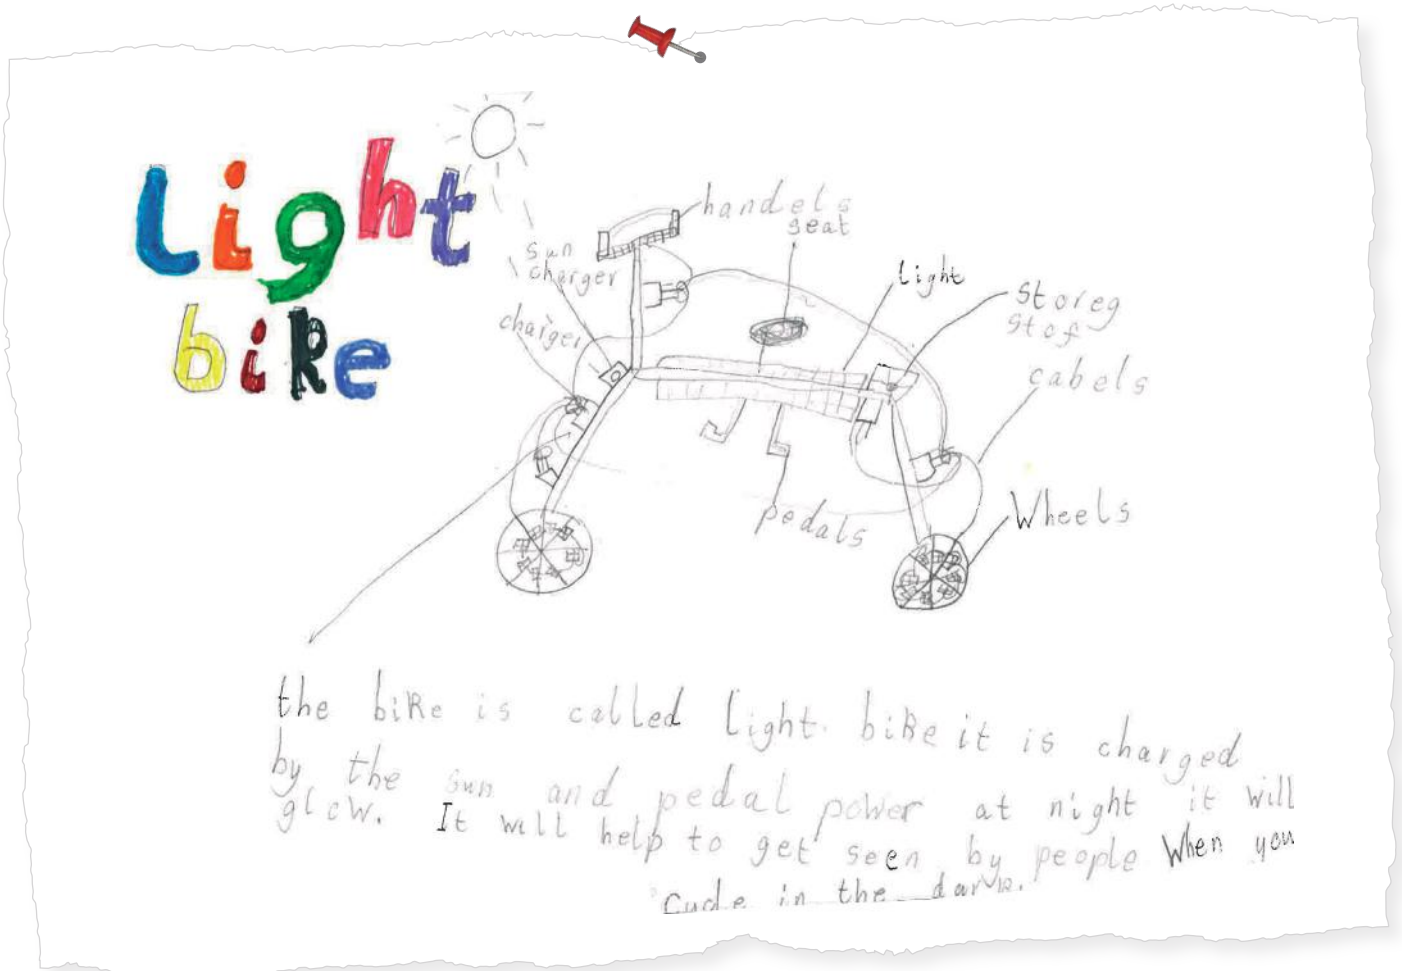 Light
bike
handels
seat
sun
charger
light
storeg
charger
cabels
Wheels
pedals
the bike is called Light bike it is charged
by the sun and pedal power at night it will
glow. It will help to get seen by people When you
in the dark.